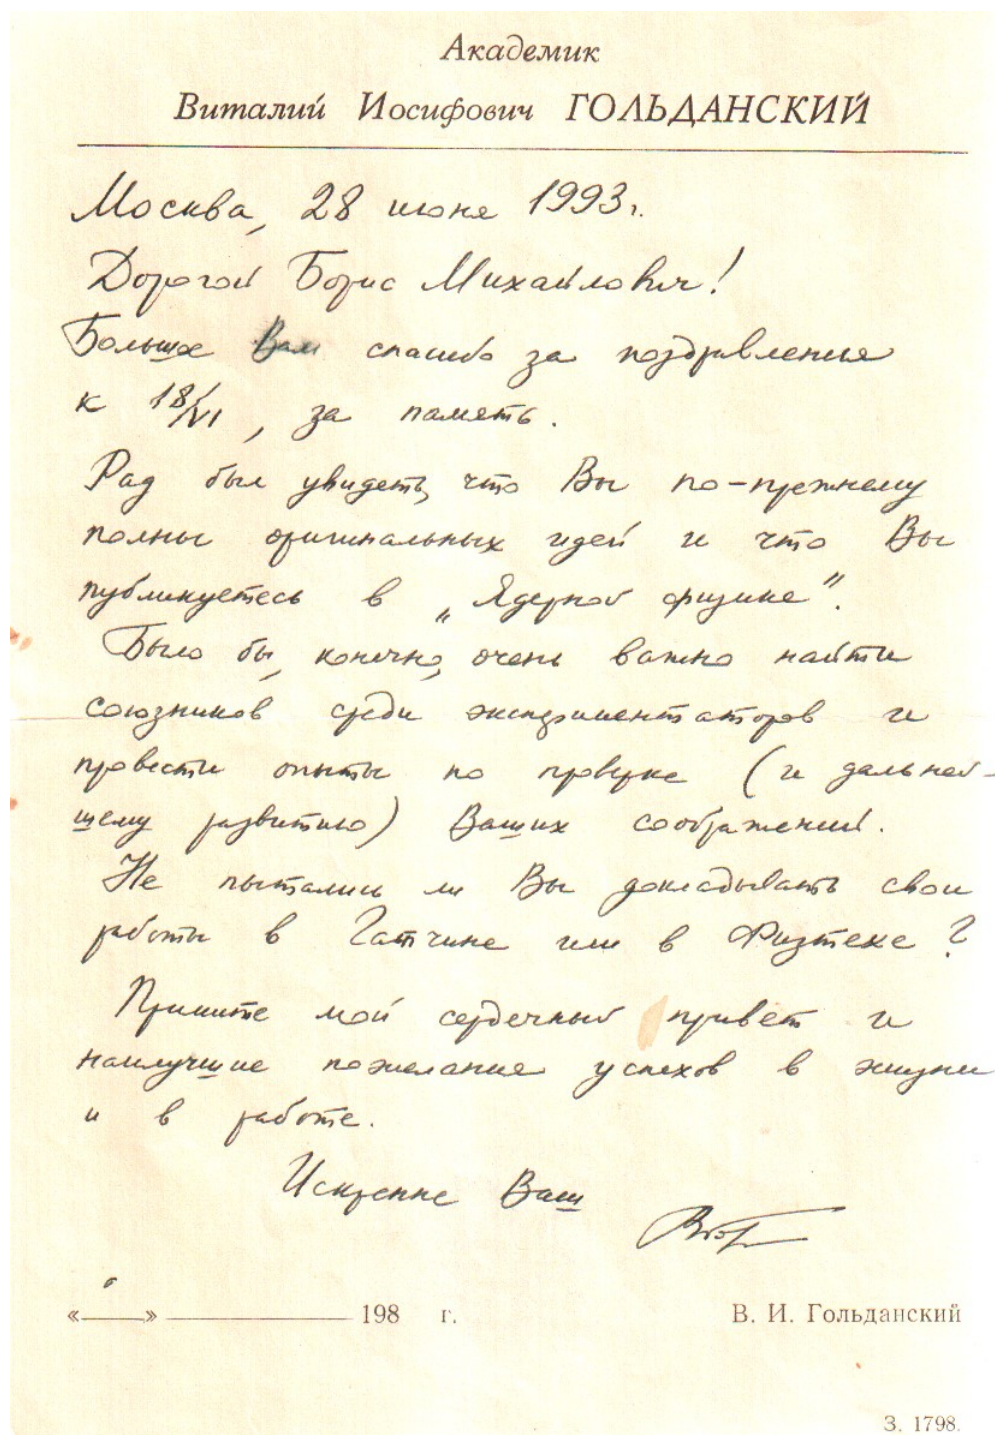 Академик
Виталий Иосифович ГОЛЬДАНСКИЙ
Москва, 28 июня 1993г.
Дорогой Борис Михайлович!
Большое Вам спасибо за поздравления
к 18/VI, за память.
Рад был увидеть, что Вы по-прежнему
полны оригинальных идей и что Вы
публикуетесь в „Ядерной физике".
Было бы, конечно, очень важно найти
союзников среди экспериментаторов и
провести опыты по проверке (и дальней-
шему развитию) Ваших соображений.
Не пытались ли Вы докладывать свои
работы в Гатчине или в Физтехе?
Примите мой сердечный привет и
наилучшие пожелание успехов в жизни
и в работе.
Искренне Ваш
« » 198 г. В. И. Гольданский
З. 1798.